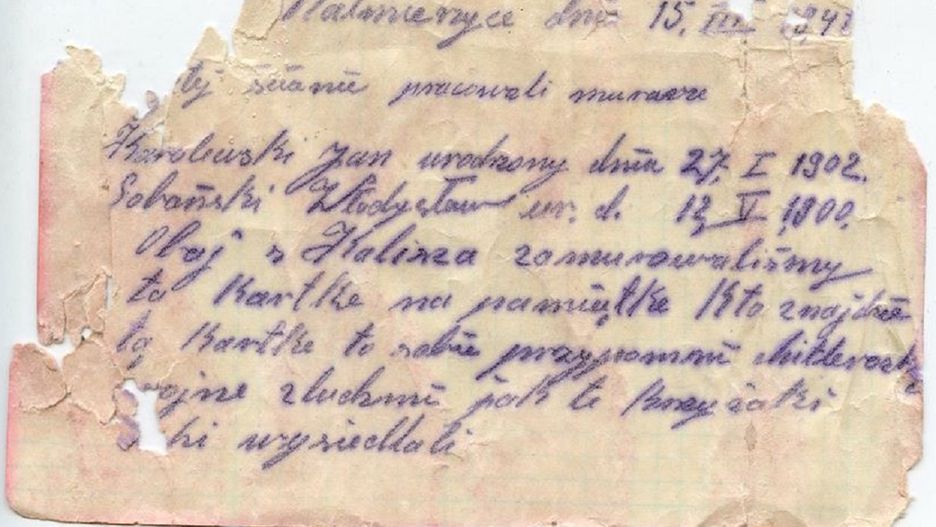 kalmierzyce dnia 15.
tej ścianie pracowali murarze
Karolewski Jan urodzony dnia 27. I 1902.
Sobański Władysław ur. d. V 1900.
Obaj z Kalisza zamurowaliśmy
to kartke na pamiątke Kto znajdzie
tą kartke to sobie przypomni
ojne jak te krzyżaki
wysiedlali